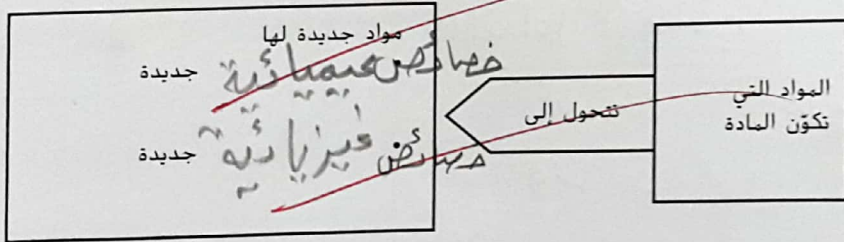 المواد التي
تكوّن المادة
تتحول إلى
مواد جديدة لها
خصائص كيميائية جديدة
خصائص فيزيائية جديدة